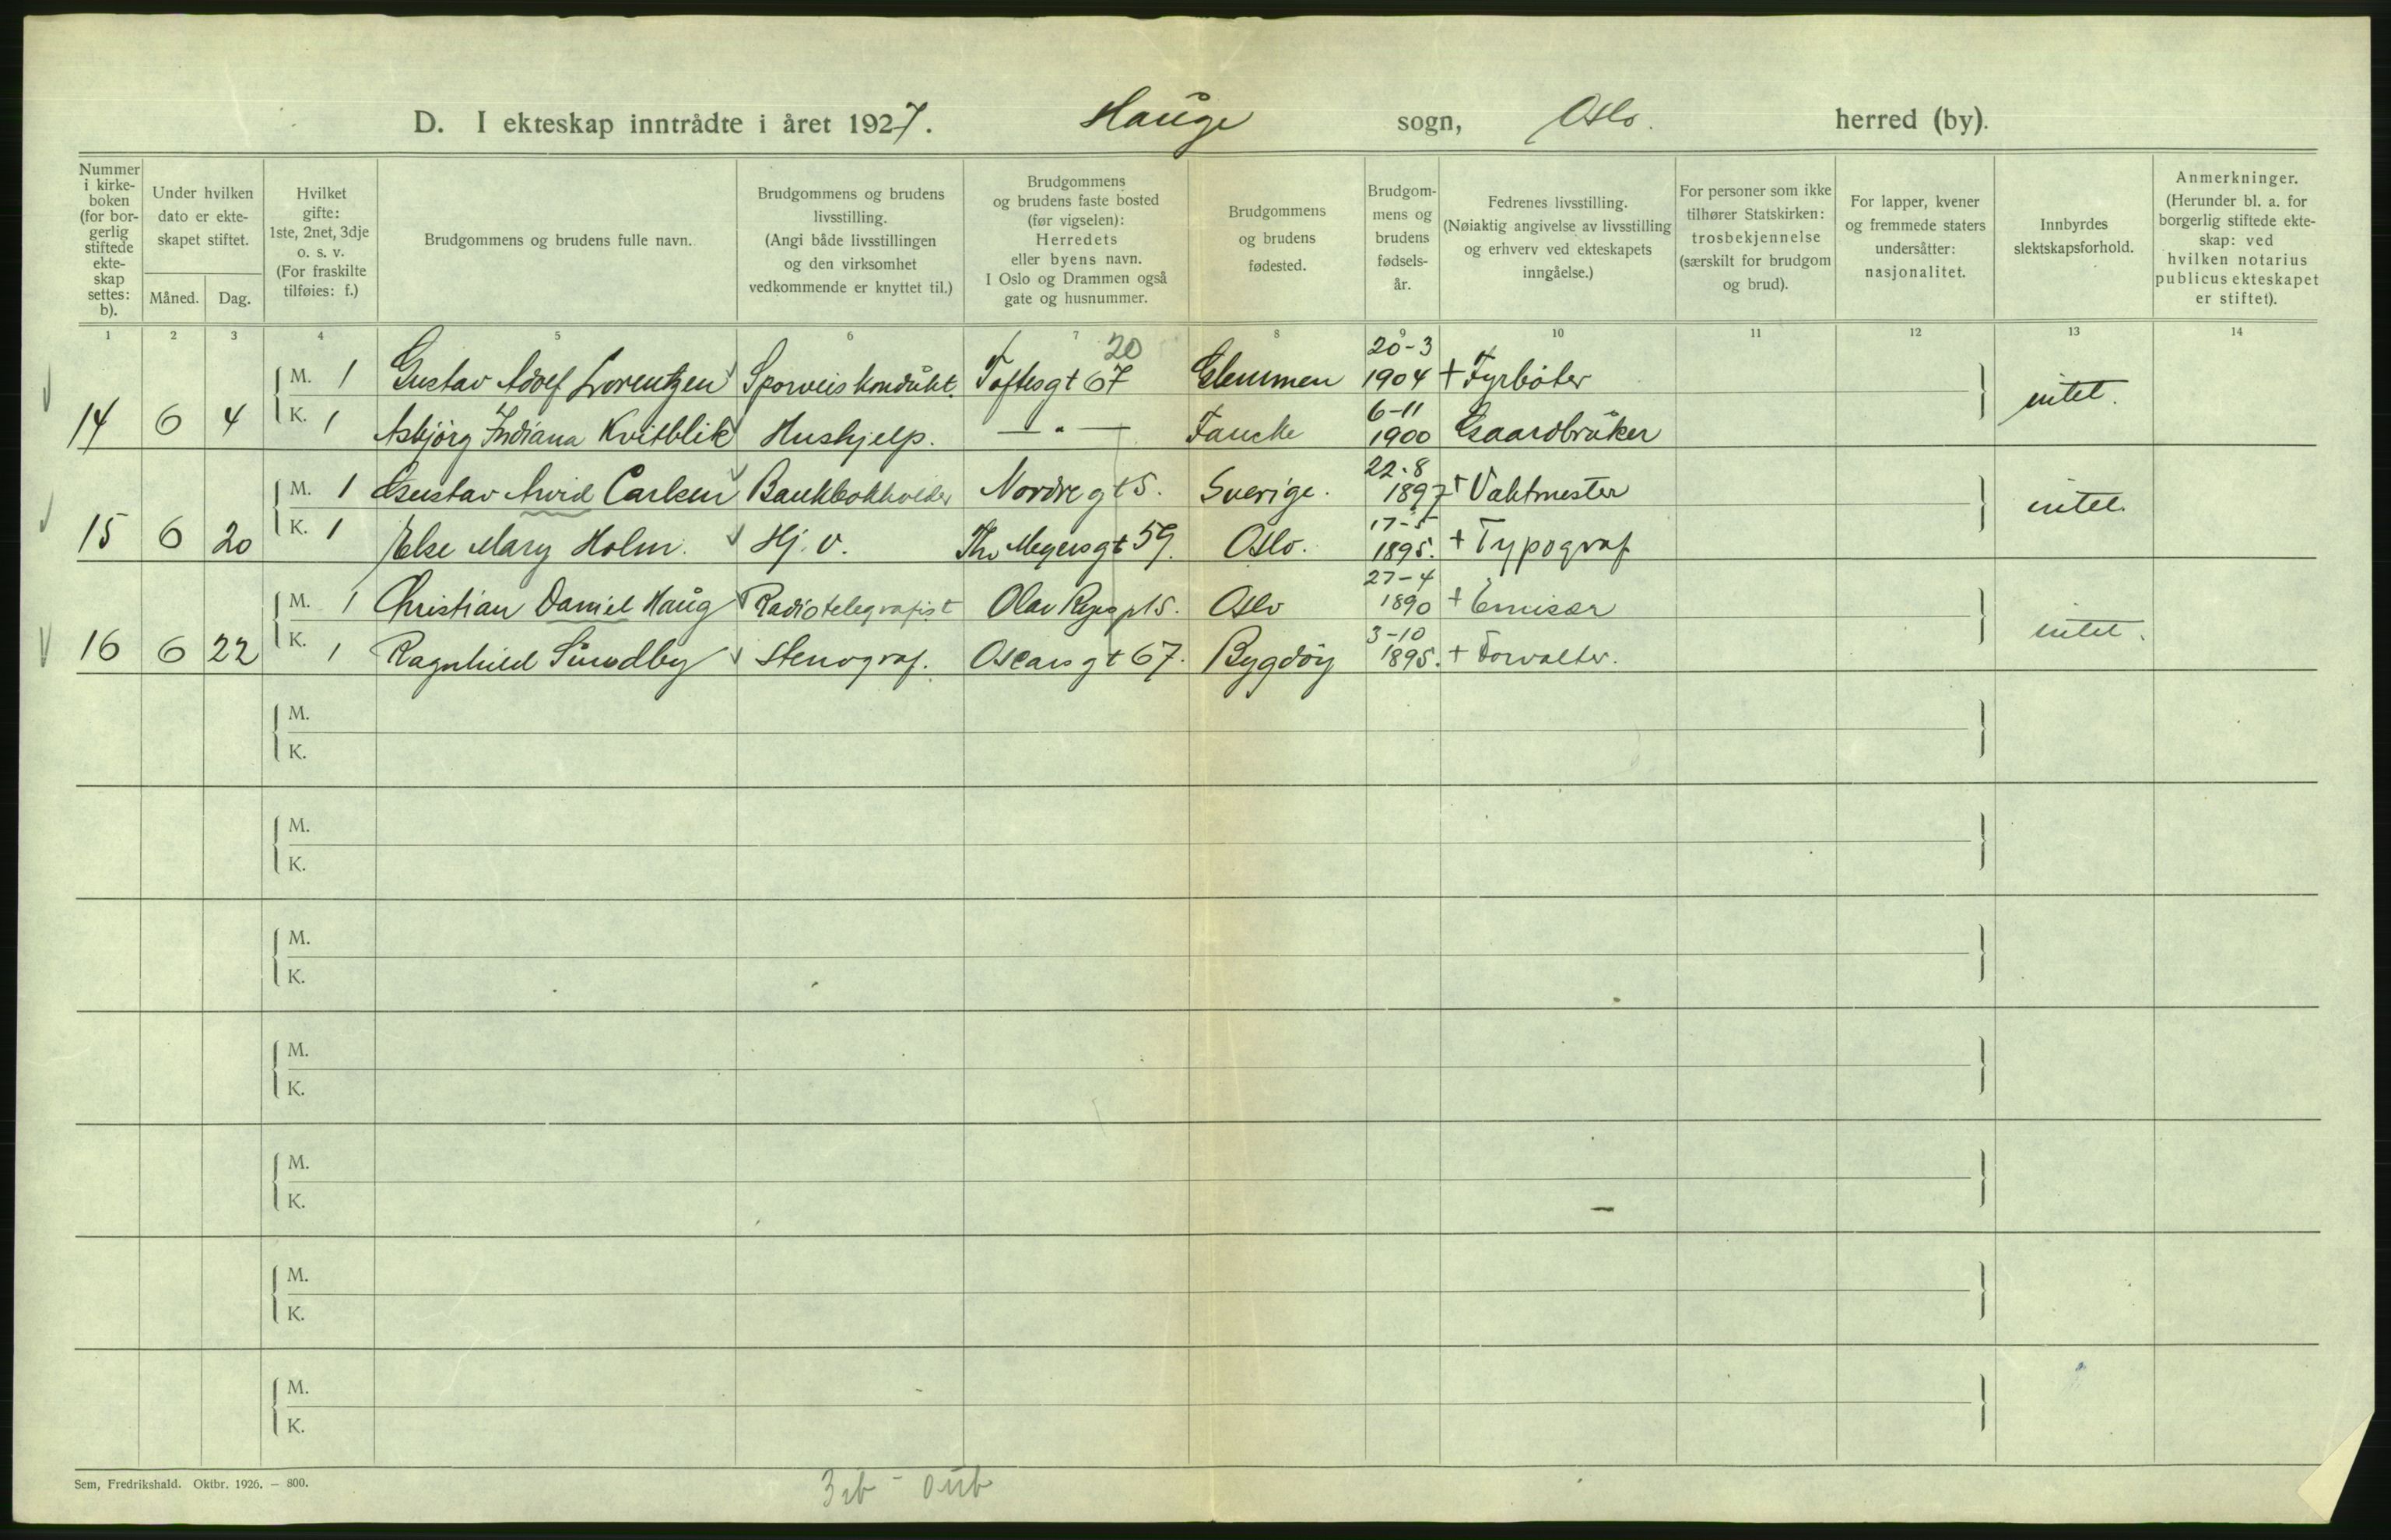 D. I ekteskap inntrådte i året 1927. Hauge sogn, Oslo. herred (by).
Nummer i kirke-boken (for bor-gerlig stiftede ekte-skap settes: b).
Under hvilken dato er ekte-skapet stiftet.
Måned. Dag.
Hvilket gifte: 1ste, 2net, 3dje o. s. v. (For fraskilte tilføies: f.)
Brudgommens og brudens fulle navn.
Brudgommens og brudens livsstilling. (Angi både livsstillingen og den virksomhet vedkommende er knyttet til.)
Brudgommens og brudens faste bosted (før vigselen): Herredets eller byens navn. I Oslo og Drammen også gate og husnummer.
Brudgommens og brudens fødested.
Brudgom-mens og brudens fødsels-år.
Fedrenes livsstilling. (Nøiaktig angivelse av livsstilling og erhverv ved ekteskapets inngåelse.)
For personer som ikke tilhører Statskirken: trosbekjennelse (særskilt for brudgom og brud).
For lapper, kvener og fremmede staters undersåtter: nasjonalitet.
Innbyrdes slektskapsforhold.
Anmerkninger. (Herunder bl. a. for borgerlig stiftede ekte-skap: ved hvilken notarius publicus ekteskapet er stiftet).
1 2 3 4 5 6 7 8 9 10 11 12 13 14
20 20-3
M. 1 Gustav Adolf Lorentzen Sporveiskondukt. Toftesgt 67 Glemmen 1904 + Fyrböter intet.
6-11
14 6 4 K. 1 Asbjörg Indiana Kvitblik Hushjelp. — " — Fauske 1900 Gaardbruker
22-8
M. 1 Gustav Arvid Carlsen Bankbokholder Nordregt 5. Sverige. 1897 + Vaktmester intet.
17-5
15 6 20 K. 1 Else Mary Holm. Hj. v. Th. Meyersgt 59. Oslo. 1895. + Typograf
27-4
M. 1 Christian Daniel Haug Radiotelegrafist Olav Ryes pl 5. Oslo 1890 + Emisær intet.
3-10
16 6 22 K. 1 Ragnhild Sundby Stenograf. Oscarsgt 67. Bygdöy 1895. + Forvalter.
M.
K.
M.
K.
M.
K.
M.
K.
M.
K.
M.
K.
M.
K.
Sem, Fredrikshald. Oktbr. 1926. — 800.